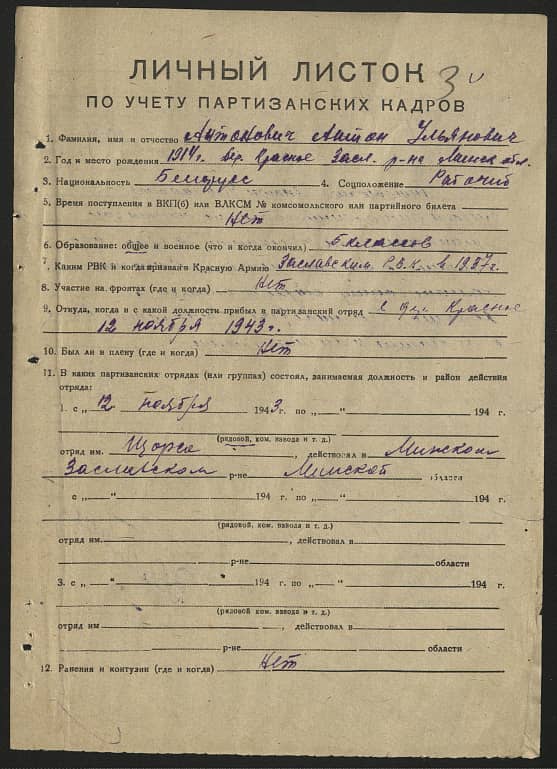 ЛИЧНЫЙ ЛИСТОК
ПО УЧЕТУ ПАРТИЗАНСКИХ КАДРОВ
1. Фамилия, имя и отчество Антонович Антон Ульянович
2. Год и место рождения 1914г. дер. Красное Засл. р-на Минск обл.
3. Национальность Белорус 4. Соцположение Рабочий
5. Время поступления в ВКП(б) или ВЛКСМ № комсомольского или партийного билета
Нет
6. Образование: общее и военное (что и когда окончил) 5 классов
7. Каким РВК и когда призван в Красную Армию Заславским Р.В.К. в 1937г.
8. Участие на фронтах (где и когда) Нет
9. Откуда, когда и с какой должности прибыл в партизанский отряд с дер. Красное
12 ноября 1943г.
10. Был ли в плену (где и когда) Нет
11. В каких партизанских отрядах (или группах) состоял, занимаемая должность и район действия
отряда:
1. с „12 ноября 1943г. по „—“ 194 г.
(рядовой, ком. взвода и т. д.)
отряд им. Щорса, действовал в Минском
Заславском р-не Минской области
с „—“ 194 г. по „—“ 194 г.
(рядовой, ком. взвода и т. д.)
отряд им. , действовал в
р-не области
3. с „—“ 194 г. по „—“ 194 г.
(рядовой, ком. взвода и т. д.)
отряд им , действовал в
р-не области
12. Ранения и контузии (где и когда) Нет